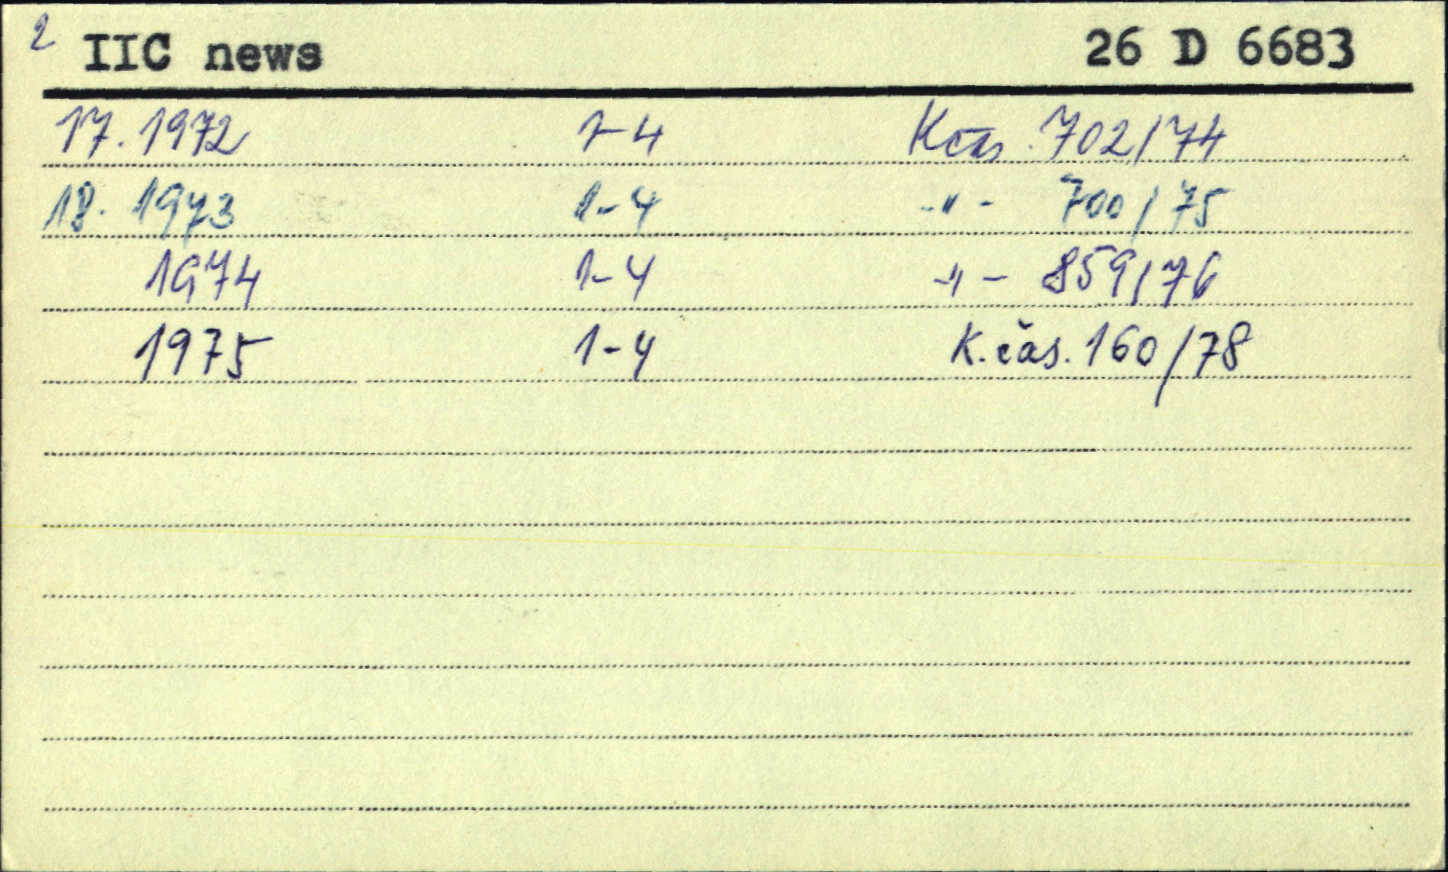 2 IIC news 26 D 6683
17. 1972 1-4 Kčas. 702/74
18. 1973 1-4 -"- 700/75
1974 1-4 -"- 859/76
1975 1-4 K.čas. 160/78